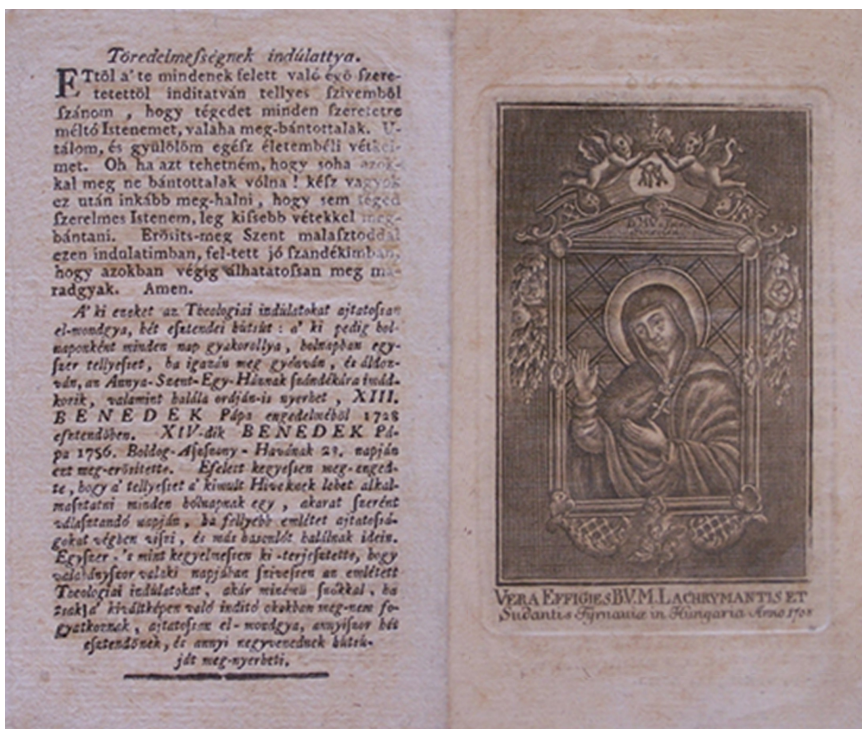 Töredelmeſségnek indúlattya.
ETtöl a' te mindenek felett való égö ſzere-
tetettöl indítatván tellyes ſzivemböl
ſzánom , hogy tégedet minden ſzeretetre
méltó Istenemet, valaha meg-bántottalak. U-
tálom, és gyülölöm egéſz életembéli vétkei-
met. Oh ha azt tehetném, hogy soha azok-
kal meg ne bántottalak vólna ! kéſz vagyok
ez után inkább meg-halni , hogy sem téged
ſzerelmes Istenem, leg kiſsebb vétekkel meg-
bántani. Erösits-meg Szent malasztoddal
ezen indulatimban, fel-tett jó ſzandékimban,
hogy azokban végig álhatatoſsan meg ma-
radgyak. Amen.
A' ki ezeket az Theologiai indúlatokat ajtatoſsan
el-mondgya, hét eſztendei bútsút : a' ki pedig hol-
naponként minden nap gyakorollya , holnapban egy-
ſzer tellyeſset , ha igazán meg gyónván , és áldoz-
ván, az Annya-Szent-Egy-Háznak ſzándékára imád-
kozik, valamint halála órdján-is nyerhet , XIII.
BENEDEK Pápa engedelméböl 1728
eſztendöben. XIV-dik BENEDEK Pá-
pa 1756. Boldog-Aſszony-Havának 29. napján
ezt meg-erösitette. Efelett kegyeſsen meg-enged-
te , hogy a' tellyeſset a' kimult Hiveknek lehet alkal-
maztatni minden holnapnak egy , akarat ſzerént
válaſztandó napján , ha fellyebb emlétet ajtatoſsá-
gokat végben viſzi , és más haſonlót halálnak idein.
Egyſzer-'s mint kegyelmeſsen ki-terjeſztette, hogy
valahányſzor valaki napjában ſziveſsen az emlétett
Theologiai indúlatokat , akár minémü ſzókkal , ha
tsak a' kiváltképen való inditó okokban meg-nem fo-
gyatkoznak , ajtatoſsan el-mondgya, annyiſzor hét
eſztendönek, és annyi negyvenednek bútsú-
ját meg-nyerheti.
VERA EFFIGIES B.V.M. LACHRYMANTIS ET
Sudantis Tÿrnaviæ in Hungaria Anno 1708